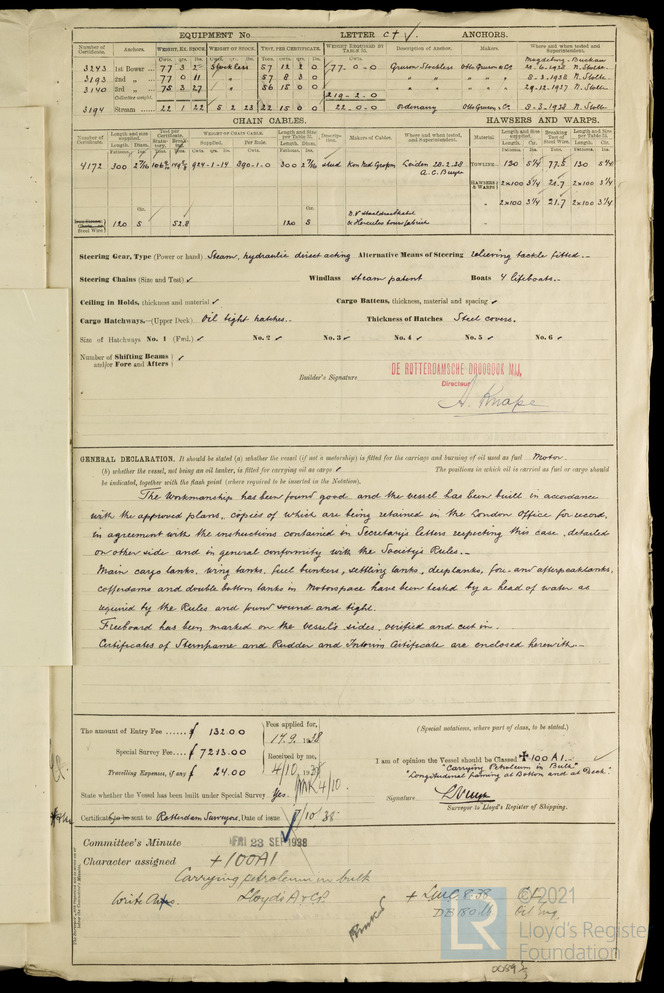 EQUIPMENT No LETTER C + ANCHORS.
Number of Certificate. Anchors. WEIGHT, EX. STOCK WEIGHT OF STOCK. TEST, PER CERTIFICATE. WEIGHT REQUIRED BY TABLE 53. Description of Anchor. Makers. Where and when tested and Superintendent.
3243 1st Bower 77 3 Stockless 57 12 2 0 77-0-0 Gruson Stockless Otto Gruson & Co. Magdeburg-Buckau 1938 N. Stolte
3193 2nd „ 77 0 11 „ 57 8 3 0 „ „ „ 8-3-1938 N. Stolte
3140 3rd „ 75 3 27 „ 56 15 0 0 „ „ „ 29-12-1937 N. Stolte
Collective weight. 219-2-0
3194 Stream 22 1 22 5 2 23 22 15 0 0 22-0-0 ordinary Otto Gruson & Co. 8-3-1938 N. Stolte
CHAIN CABLES. HAWSERS AND WARPS.
Number of Certificate. Length and size supplied. Test per Certificate. WEIGHT OF CHAIN CABLE. Length and Size per Table 53. Description. Makers of Cables. Where and when tested, and Superintendent. Material Length and Size supplied. Breaking Test of Steel Wire. Length and Size per Table 53.
4172 300 2 7/16 924-1-14 890-1-0 300 2 7/16 stud Leiden 28.2.38 TOWLINE 130 5¼ 77.5 130 5¼
A.C. Buys
HAWSERS & WARPS 2x100 3¼ 21.7 2x100 3¼
„ 2x100 3¼ 21.7 2x100 3¼
Steel Wire 120 5 52.8 120 5 & Hercules
Steering Gear, Type (Power or hand) Steam, hydraulic direct acting Alternative Means of Steering relieving tackle fitted.
Steering Chains (Size and Test) ✓ Windlass steam patent Boats 4 lifeboats.
Ceiling in Holds, thickness and material ✓ Cargo Battens, thickness, material and spacing ✓
Cargo Hatchways.—(Upper Deck). Oil tight hatches. Thickness of Hatches Steel covers.
Size of Hatchways No. 1 (Fwd.) ✓ No. 2 ✓ No. 3 ✓ No. 4 ✓ No. 5 ✓ No. 6 ✓
Number of Shifting Beams and/or Fore and Afters ✓
Builder's Signature DE ROTTERDAMSCHE DROOGDOK MIJ.
Directeur
A. Knape
GENERAL DECLARATION. It should be stated (a) whether the vessel (if not a motorship) is fitted for the carriage and burning of oil used as fuel Motor.
(b) whether the vessel, not being an oil tanker, is fitted for carrying oil as cargo ✓ The positions in which oil is carried as fuel or cargo should
be indicated, together with the flash point (where required to be inserted in the Notation).
The Workmanship has been found good and the vessel has been built in accordance
with the approved plans, copies of which are being retained in the London Office for record,
in agreement with the instructions contained in Secretary's letters respecting this case, detailed
on other side and in general conformity with the Society's Rules.
Main cargo tanks, wing tanks, fuel bunkers, settling tanks, deeptanks, fore- and afterpeaktanks,
cofferdams and double bottom tanks in Motorspace have been tested by a head of water as
required by the Rules and found sound and tight.
Freeboard has been marked on the vessel's sides, verified and cut in.
Certificates of Sternframe and Rudder and Interim Certificate are enclosed herewith.
The amount of Entry Fee ...... ƒ 132.00 Fees applied for, 17.9.1938 (Special notations, where part of class, to be stated.)
Special Survey Fee ... ƒ 7213.00 Received by me, 4/10 1938 I am of opinion the Vessel should be Classed ✠100A1.
Travelling Expenses, if any ƒ 24.00 "Carrying Petroleum in Bulk"
"Longitudinal framing at Bottom and at Deck."
State whether the Vessel has been built under Special Survey Yes. 4/10. Signature
Certificate to be sent to Rotterdam Surveyors, Date of issue 7/10/38. Surveyor to Lloyd's Register of Shipping.
Committee's Minute FRI 23 SEP 1938
Character assigned +100A1
Carrying petroleum in bulk
Lloyd's A & CP. + LMC 8.38 CL
DB 180 lb
©2021
LR
Lloyd's Register
Foundation